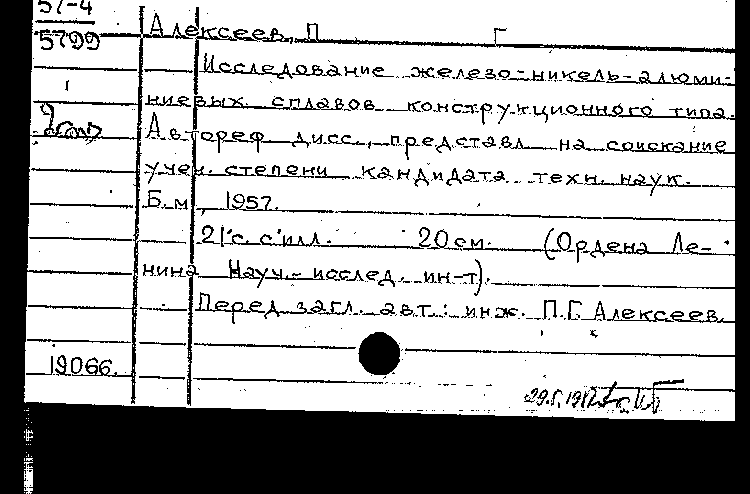 57-4
5799
Алексеев, П Г
Исследование железо-никель-алюми-
ниевых сплавов конструкционного типа.
Автореф дисс., представл на соискание
учен. степени кандидата техн. наук.
Б. м., 1957.
21 с. с илл. 20 см. (Ордена Ле-
нина Науч.- исслед. ин-т).
Перед загл. авт: инж. П.Г. Алексеев.
19066.